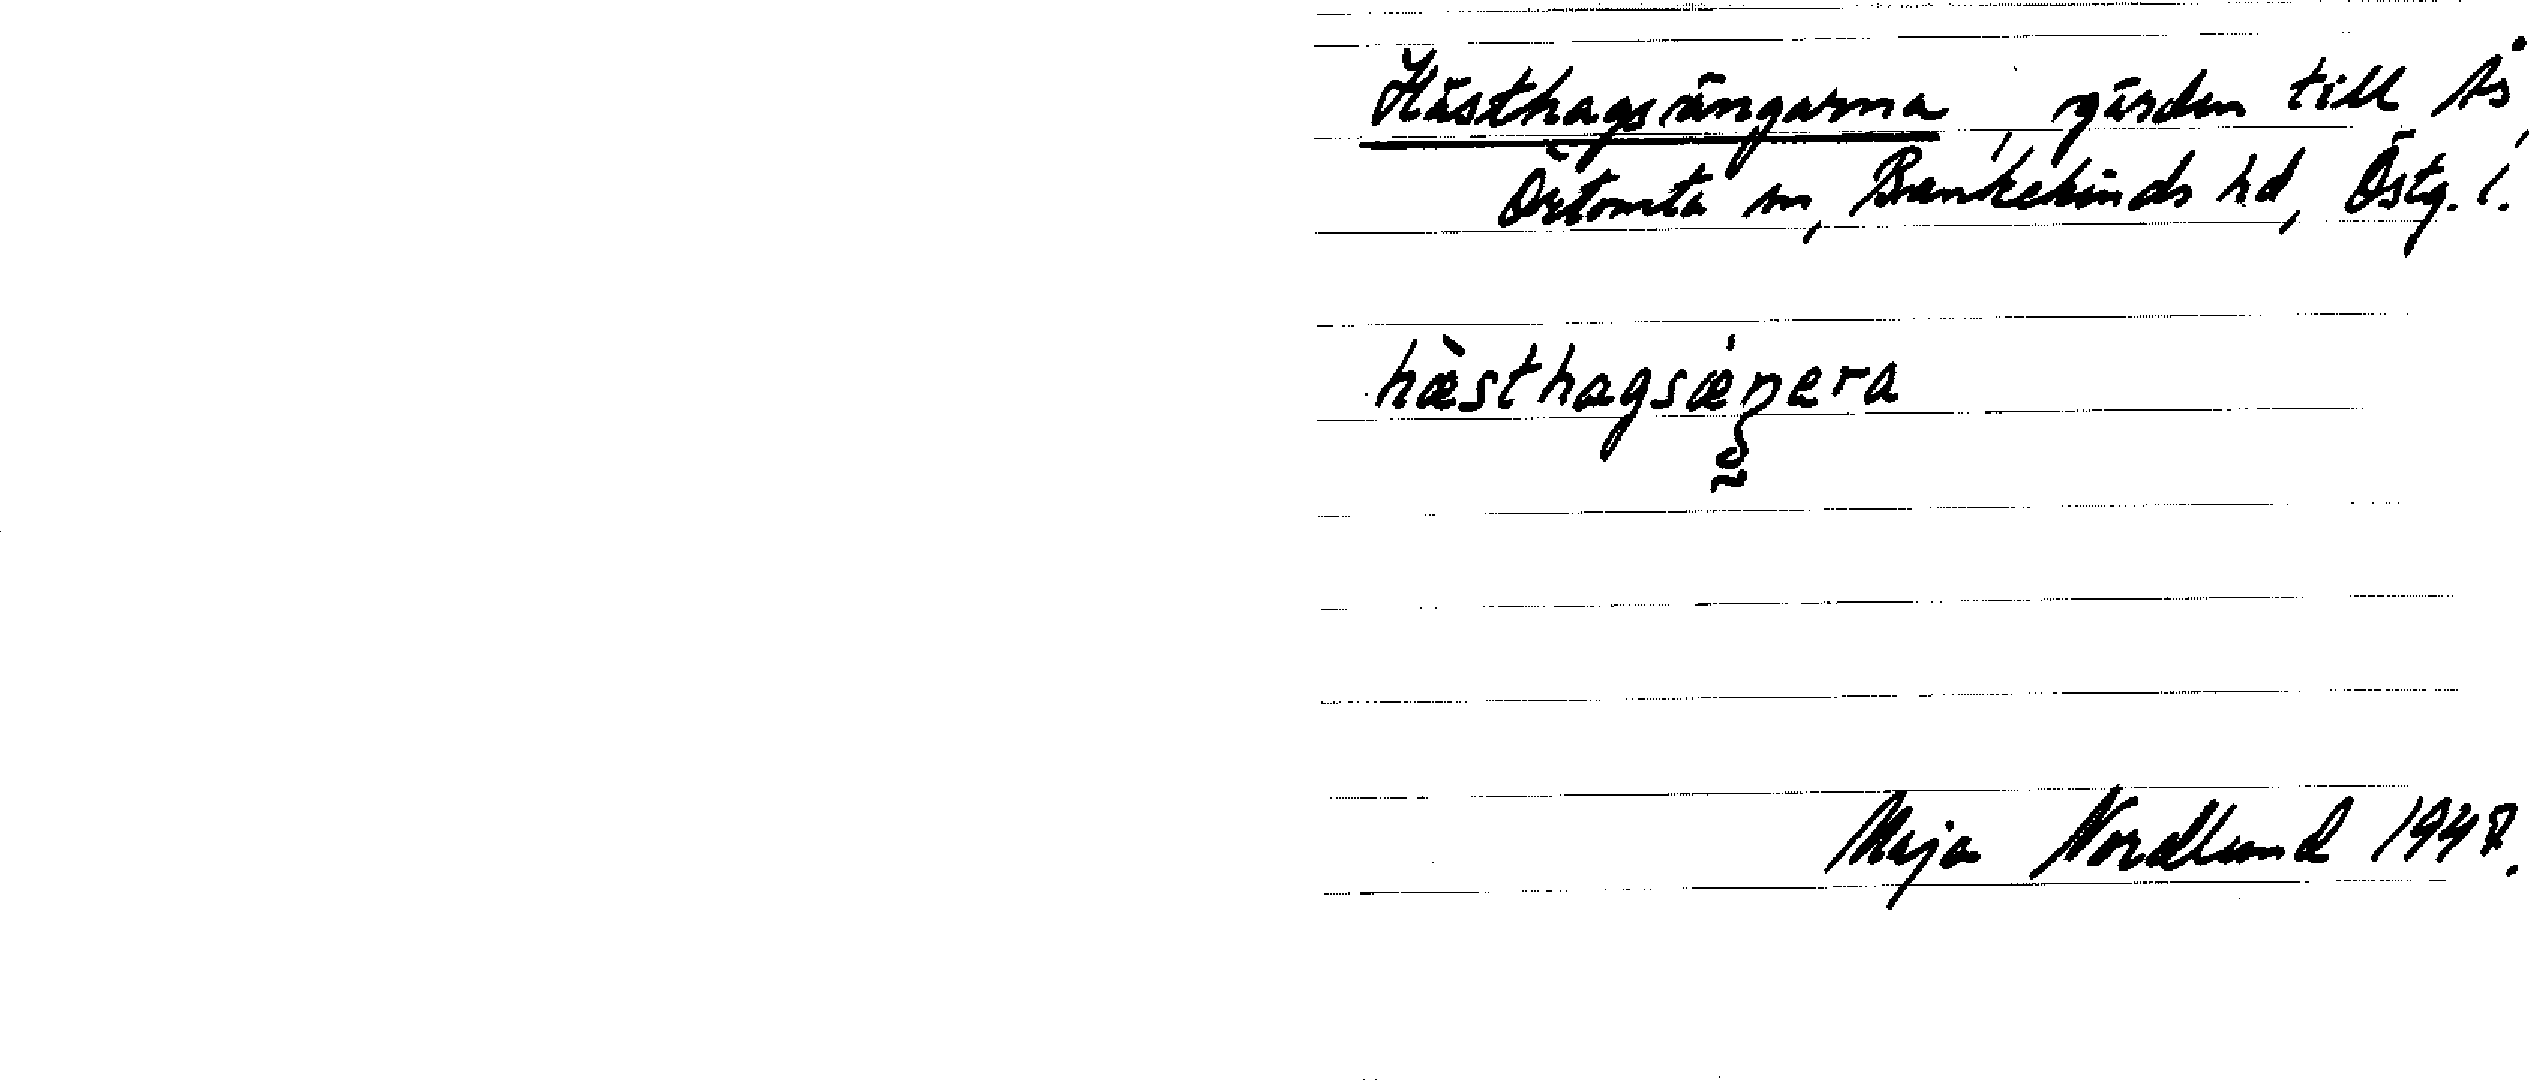 Hästhagsängarna, gärden till Ås,
Örtomta sn, Bankekinds hd, Östg. l.
hæ̀sthagsǽŋera
Maja Nordlund 1947.